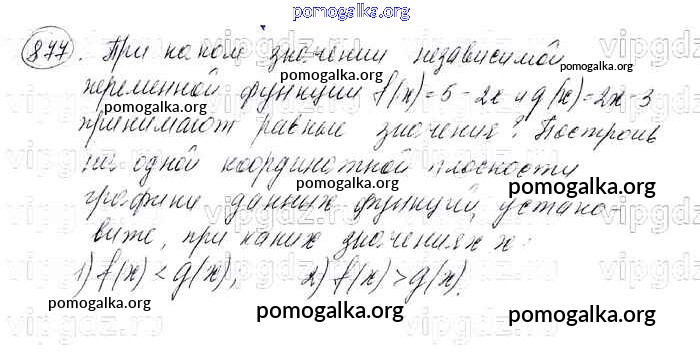 pomogalka.org
877. При каком значении независимой
pomogalka.org
переменной функции f(x)=5-2x и g(x)=2x-3
pomogalka.org pomogalka.org
принимают равные значения? Построив
на одной координатной плоскости
pomogalka.org pomogalka.org
графики данных функций, устано-
вите, при каких значениях x:
1) f(x) < g(x); 2) f(x) > g(x).
pomogalka.org pomogalka.org
vipgdz.ru